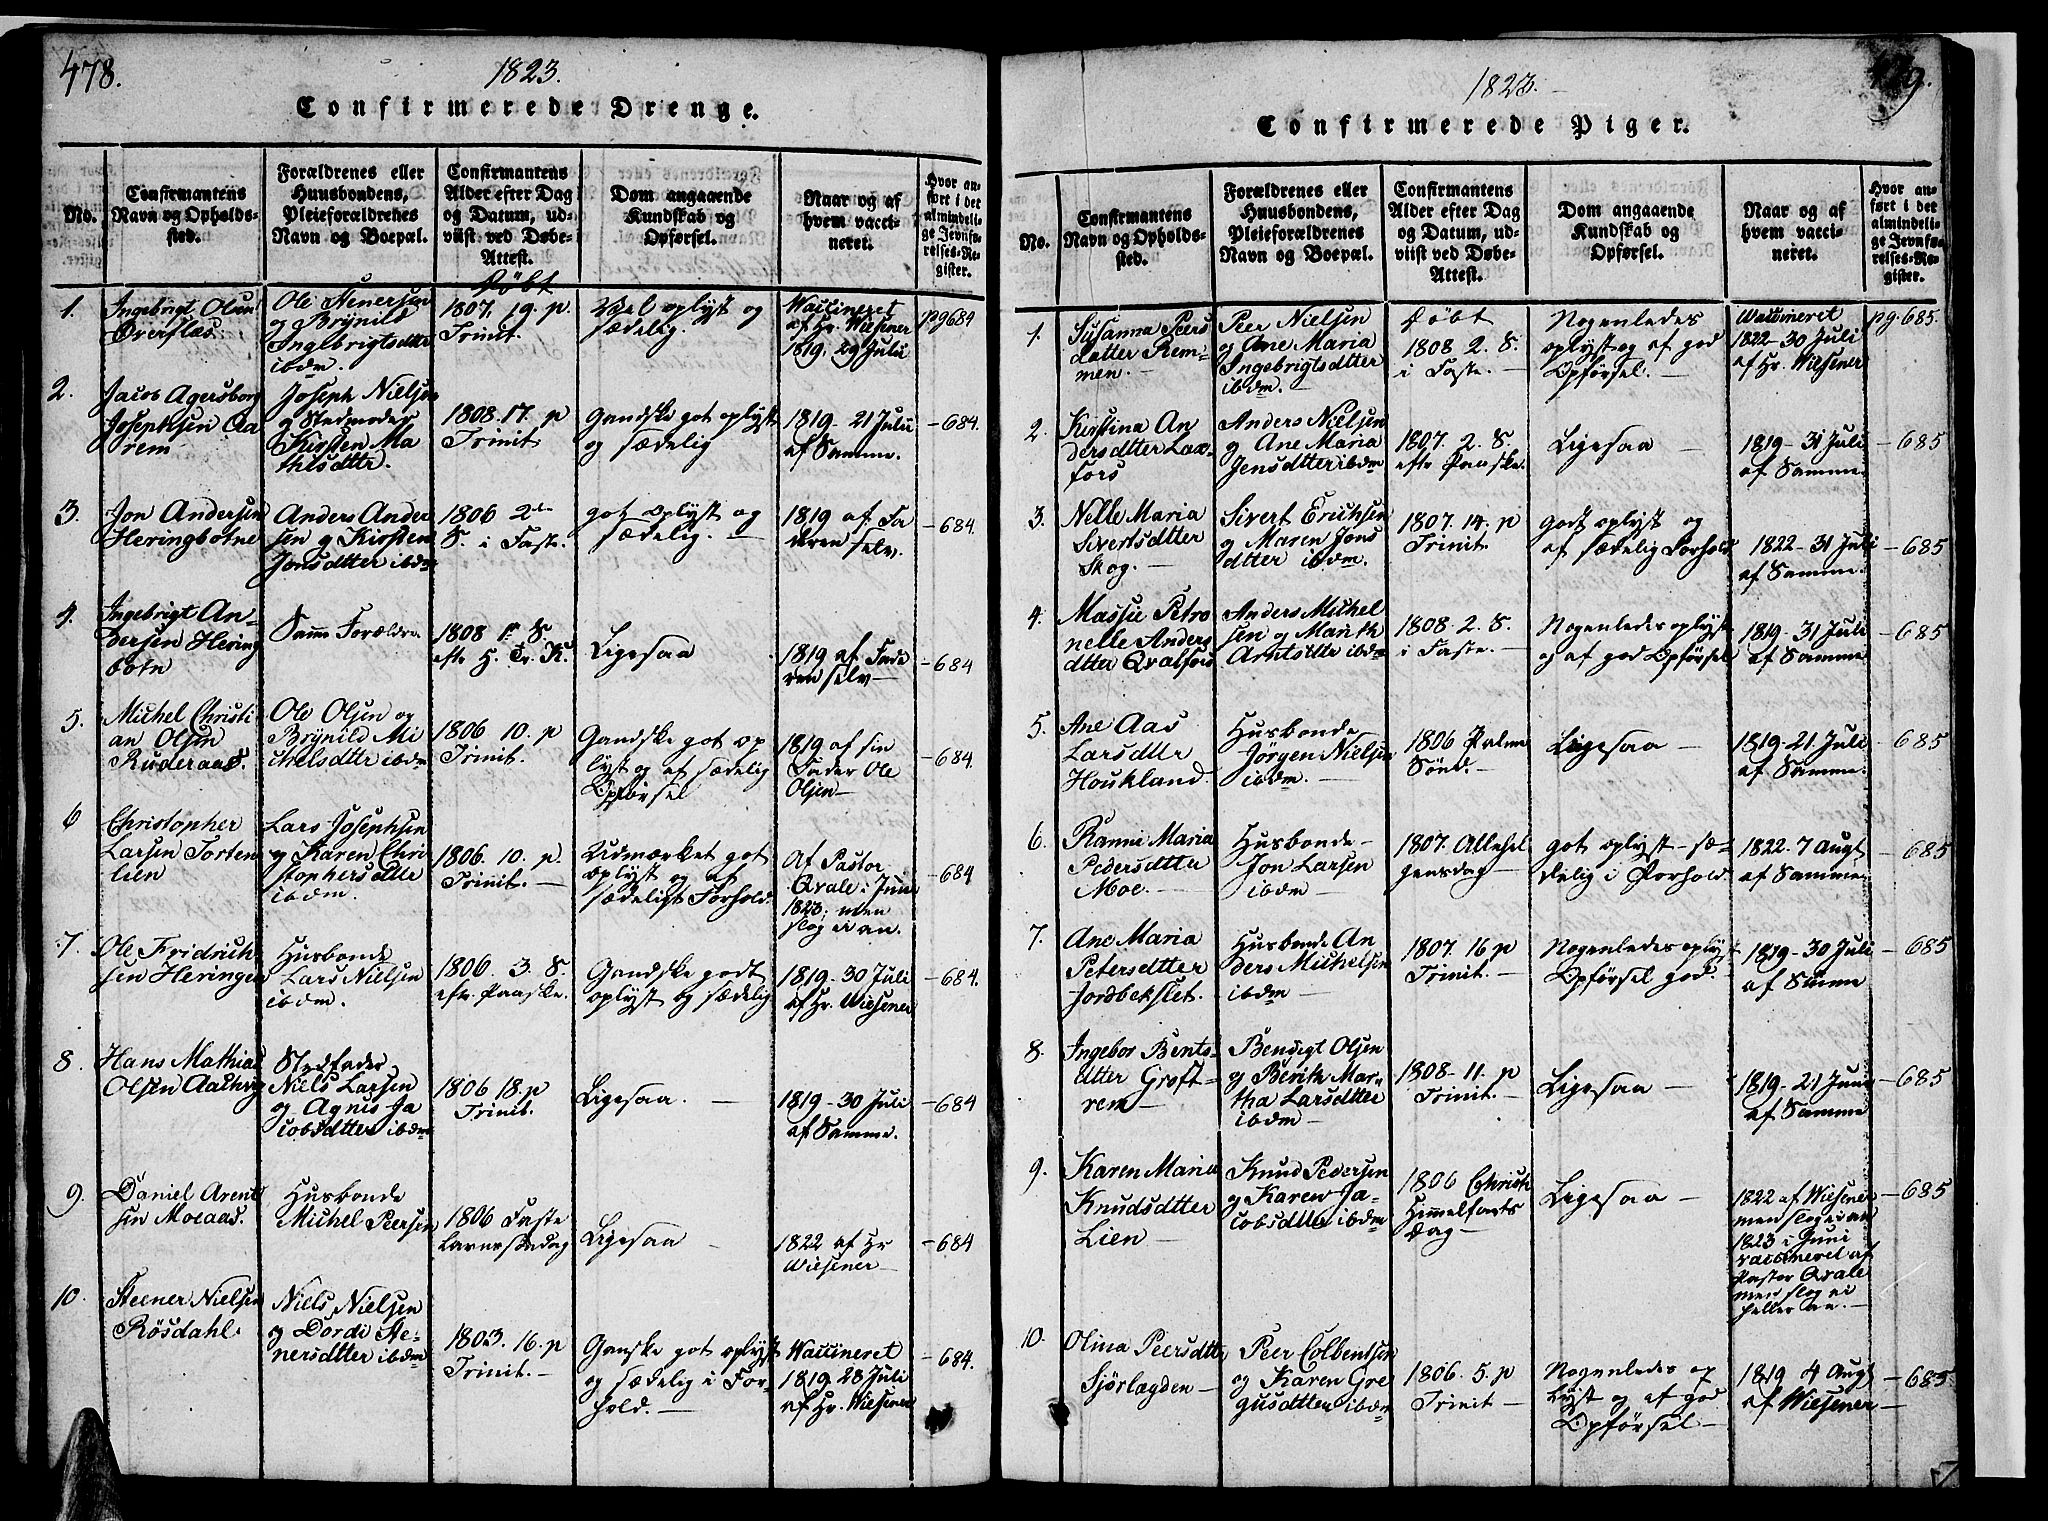 478.
1823.
Confirmerede Drenge.
No.
Confirmantens Navn og Opholdssted.
Forældrenes eller Huusbondens, Pleieforældrenes Navn og Boepæl.
Confirmantens Alder efter Dag og Datum, udviist ved Døbe-Attest.
Dom angaaende Kundskab og Opførsel.
Naar og af hvem vaccineret.
Hvor anført i det almindelige Jevnførelses-Register.
Døbt
1.
Ingebrigt Olsen
Ole Stenersen
og Brynild
Ingebrigtsdtter
ibdm.
1807. 19. p.
Trinit.
Vel oplyst og
sædelig.
Vaccineret
af Hr. Wiesener
1819. 29 Julii
pg 684
2.
Jacob Agersborg
Josephsen Aa
rem
Joseph Nielsen
og Stedmoder
Kirsten Ma
thisdtter.
1808. 17. p
Trinit.
Gandske got oplyst
og sædelig
1819 - 21 Julii
af Samme.
- 684.
3.
Jon Andersen
Heringbotne
Anders Ander
sen og Kirsten
Jonsdtter ibdm
1806 2den
S. i Faste.
got oplyst og
sædelig.
1819 af Fa
deren selv.
- 684.
4.
Ingebrigt An-
dersen Hering
botn
Samme Forældre.
1808 1r S.
eftr H. Tr. K.
Ligesaa
1819 af Fade
ren selv -
- 684
5.
Michel Christi
an Olsen
Ruderaas.
Ole Olsen og
Brynild Mi
chelsdtter ibdm
1806 10. p
Trinit.
Gandske got op
lyst og af sædelig
Opførsel
1819 af sin
Fader Ole
Olsen -
- 684.
6
Christopher
Larsen Torten
lien
Lars Josephsen
og Karen Chri
stophersdtter
ibdm.
1806. 10. p.
Trinit. -
Udmærket got
oplyst og af
sædeligt Forhold.
Af Pastor
Qvale i Juni
1823; men
slog ei an.
- 684
7.
Ole Fridrich
sen Heringen
Husbonde
Lars Nielsen
ibdm.
1806. 3. S.
eftr. Paaske.
Gandske godt
oplyst og sædelig
1819 - 30 Juli
af Hr. Wiesener
- 684.
8.
Hans Mathias
Olsen
Stedfader
Niels Larsen
og Agnis Ja
cobsdtter ibdm
1806 18. p
Trinit.
Ligesaa. -
1819 - 30 Juli
af Samme.
- 684
9.
Daniel Arent
sen Moeaas.
Husbonde
Michel Peersen
1806 Faste
lavnssøndag
Ligesaa -
1822 af Hr
Wiesener -
- 684
10.
Steener Nielsen
Røsdahl
Niels Nielsen
og Dordi Ste-
nersdtter ibdm
1803. 16. p
Trinit. -
Ganske got oplyst
og sædelig i For-
hold. -
Vaccineret
1819 28 Juli
af Hr. Wiesener
- 684.
479.
1823.
Confirmerede Piger.
No.
Confirmantens Navn og Opholdssted.
Forældrenes eller Huusbondens, Pleieforældrenes Navn og Boepæl.
Confirmantens Alder efter Dag og Datum, udviist ved Døbe-Attest.
Dom angaaende Kundskab og Opførsel.
Naar og af hvem vaccineret.
Hvor anført i det almindelige Jevnførelses-Register.
1.
Susanna Peers
datter Rem-
men. -
Peer Nielsen
og Ane Maria
Ingebrigtsdtter
ibdm. -
Døbt
1808 2. S.
i Faste. -
Nogenledes
oplyst og af god
Opførsel. -
Vaccineret
1822 - 30 Juli
af Hr. Wiesener
pg. 685.
2.
Kirstina An
dersdtter Lax-
fors
Anders Nielsen
og Ane Maria
Jensdtter ibdm
1807. 2. S.
eftr Paaske.
Ligesaa -
1819 - 31 Juli
af Samme.
- 685
3.
Nelle Maria
Sivertsdtter
Skog. -
Sivert Erichsen
og Maren Jons
dtter ibdm.
1807. 14. p
Trinit.
godt oplyst og
af sædelig Forhold
1822 - 31 Juli
af Samme.
- 685
4.
Massie Petro
nelle Anders
dtter Qvalfors
Anders Michel
sen og Marith
Arntsdtter ibdm
1808. 2. S.
i Faste. -
Nogenledes oplyst
og af god Opførsel
1819 - 31 Juli
af Samme
- 685
5.
Ane Aas
Larsdtter
Houkland.
Husbonde
Jørgen Nielsen
ibdm. -
1806 Palme
Sønd. -
Ligesaa -
1819 - 21 Juli
af Samme.
- 685
6.
Ranni Maria
Pedersdtter
Moe. -
Husbonde -
Jon Larsen
ibdm -
1807. Allehel
gensdag -
got oplyst - sæ-
delig i Forhold.
1822. 7 Augt
af Samme.
- 685
7.
Ane Maria
Petersdtter
Jordbekslet.
Husbonde An
ders Michelsen
ibdm -
1807. 16 p
Trinit. -
Nogenledes oplyst
Opførsel god.
1819 - 30 Juli
af Samme
- 685
8.
Ingebor Bents-
dtter Groft-
rem -
Bendigt Olsen
og Berith Mar-
tha Larsdtter
ibdm -
1808 - 11. p
Trinit. -
Ligesaa -
1819 - 21 Juni
af Samme
- 685
9.
Karen Maria
Knudsdtter
Lien -
Knud Pedersen
og Karen Ja-
cobsdtter ibdm
1806 Christi
Himmelfarts
Dag -
Ligesaa -
1822 af Wiesener
men slog ei an
1823 i Juni
vaccineret af
Pastor Qvale
men slog ei
heller an. -
- 685
10.
Olina Peersdtter
Sjørlægden -
Peer Colbentsen
og Karen Gre
gusdtter ibdm
1806. 5. p
Trinit -
Nogenledes op
lyst og af god
Opførsel -
1819 4 Augt
af Wiesener -
- 685.